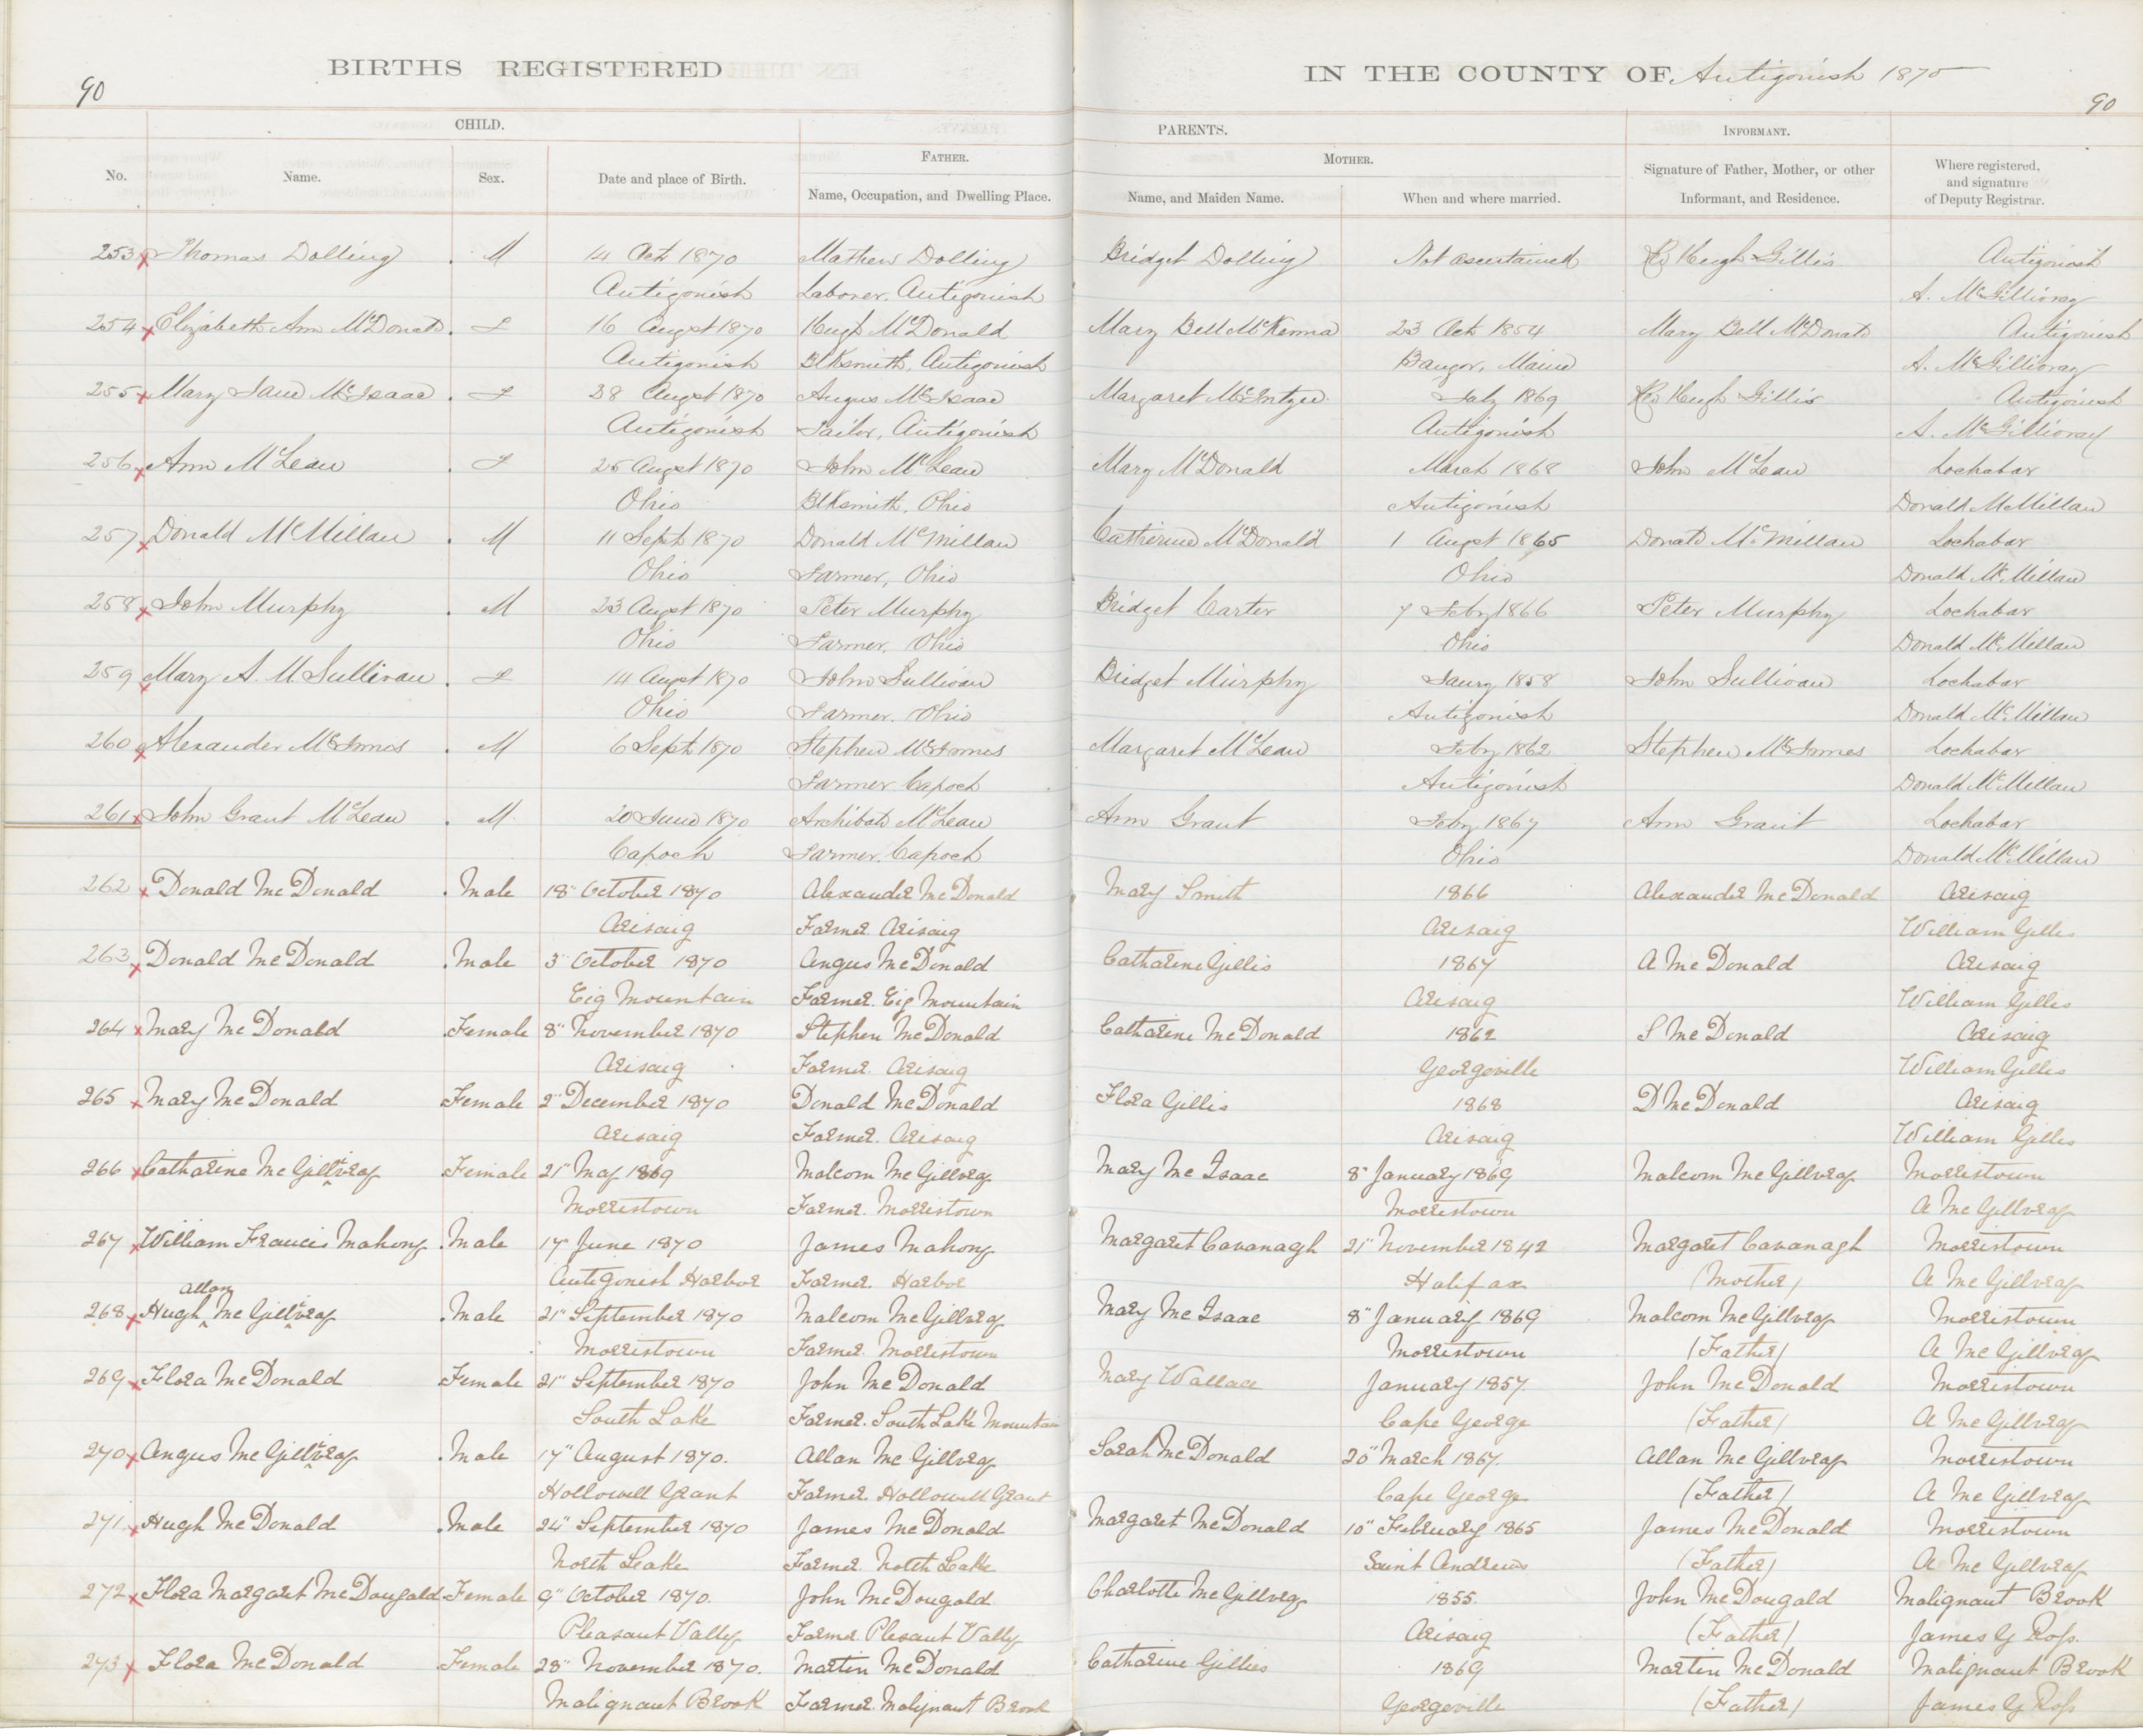 BIRTHS REGISTERED
IN THE COUNTY OF Antigonish 1870
90
90
CHILD.
PARENTS.
INFORMANT.
FATHER.
MOTHER.
No.
Name.
Sex.
Date and place of Birth.
Name, Occupation, and Dwelling Place.
Name, and Maiden Name.
When and where married.
Signature of Father, Mother, or other
Informant, and Residence.
Where registered,
and signature
of Deputy Registrar.
253 x Thomas Dolling . M 14 Oct 1870 Mathew Dolling Bridget Dolling Not ascertained Rev Hugh Gillis Antigonish
Antigonish Laborer. Antigonish A. McGillivray
254 x Elizabeth Ann McDonald . F 16 Augst 1870 Hugh McDonald Mary Bell McKenna 23 Oct 1854 Mary Bell McDonald Antigonish
Antigonish Blksmith, Antigonish Bangor, Maine A. McGillivray
255 x Mary Jane McIsaac . F 28 Augst 1870 Angus McIsaac Margaret McIntyre July 1869 Rev Hugh Gillis Antigonish
Antigonish Tailor, Antigonish Antigonish A. McGillivray
256 x Ann McLean . F 25 Augst 1870 John McLean Mary McDonald March 1868 John McLean Lochabar
Ohio Blksmith, Ohio Antigonish Donald McMillan
257 x Donald McMillan . M 11 Sept 1870 Donald McMillan Catherine McDonald 1 Augst 1865 Donald McMillan Lochabar
Ohio Farmer, Ohio Ohio Donald McMillan
258 x John Murphy . M 23 Augst 1870 Peter Murphy Bridget Carter 7 Feby 1866 Peter Murphy Lochabar
Ohio Farmer, Ohio Ohio Donald McMillan
259 x Mary A. M. Sullivan . F 14 Augst 1870 John Sullivan Bridget Murphy Jaury 1858 John Sullivan Lochabar
Ohio Farmer. Ohio Antigonish Donald McMillan
260 x Alexander McInnes . M 6 Sept 1870 Stephen McInnes Margaret McLean Feby 1862 Stephen McInnes Lochabar
Farmer Capoch Antigonish Donald McMillan
261 x John Grant McLean . M 20 June 1870 Archibald McLean Ann Grant Feby 1867 Ann Grant Lochabar
Capoch Farmer, Capoch Ohio Donald McMillan
262 x Donald McDonald . Male 18" October 1870 Alexander McDonald Mary Smith 1866 Alexander McDonald Arisaig
Arisaig Farmer Arisaig Arisaig William Gillis
263 x Donald McDonald . Male 3" October 1870 Angus McDonald Catharine Gillis 1867 A McDonald Arisaig
Eig Mountain Farmer. Eig Mountain Arisaig William Gillis
264 x Mary McDonald . Female 8" November 1870 Stephen McDonald Catharine McDonald 1862 S McDonald Arisaig
Arisaig Farmer. Arisaig Georgeville William Gillis
265 x Mary McDonald Female 2" December 1870 Donald McDonald Flora Gillis 1868 D McDonald Arisaig
Arisaig Farmer. Arisaig Arisaig William Gillis
266 x Catharine McGillivray Female 21" May 1869 Malcom McGillvray Mary McIsaac 8" January 1869 Malcom McGillvray Morristown
Morristown Farmer. Morristown Morristown A McGillvray
267 x William Francis Mahony . Male 17" June 1870 James Mahony Margaret Cavanagh 21" November 1842 Margaret Cavanagh Morristown
Antigonish Harbor Farmer. Harbor Halifax (Mother) A McGillvray
Allan
268 x Hugh McGillivray . Male 21" September 1870 Malcom McGillvray Mary McIsaac 8" January 1869 Malcom McGillvray Morristown
Morristown Farmer. Morristown Morristown (Father) A McGillvray
269 x Flora McDonald Female 21" September 1870 John McDonald Mary Wallace January 1857. John McDonald Morristown
South Lake Farmer. South Lake Mountain Cape George (Father) A McGillvray
270 x Angus McGillivray . Male 17" August 1870. Allan McGillvray Sarah McDonald 20" March 1867. Allan McGillvray Morristown
Hollowell Grant Farmer. Hollowell Grant Cape George (Father) A McGillvray
271 x Hugh McDonald . Male 24" September 1870 James McDonald Margaret McDonald 10" February 1865 James McDonald Morristown
North Leake Farmer. North Leake Saint Andrews (Father) A McGillvray
272 x Flora Margaret McDougald . Female 9" October 1870. John McDougald Charlotte McGillvray 1855. John McDougald Malignant Brook
Pleasant Vally Farmer Plesant Vally Arisaig (Father) James G Ross.
273 x Flora McDonald Female 28" November 1870. Martin McDonald Catharine Gillies 1869 Martin McDonald Malignant Brook
Malignant Brook Farmer. Malignant Brook Georgeville (Father) James G Ross